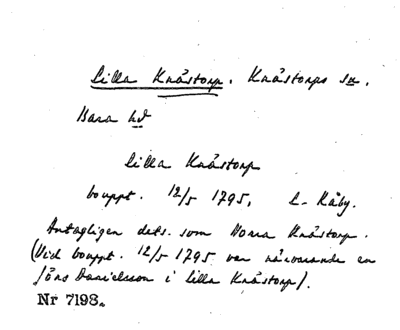 Lilla Knåstorp. Knåstorps sn.
Bara hd
Lilla Knåstorp
bouppt. 12/5 1795, L. Råby.
Antagligen dets. som Norra Knåstorp.
(Vid bouppt. 12/5 1795 var närvarande en
Jöns Danielsson i Lilla Knåstorp).
Nr 7198.